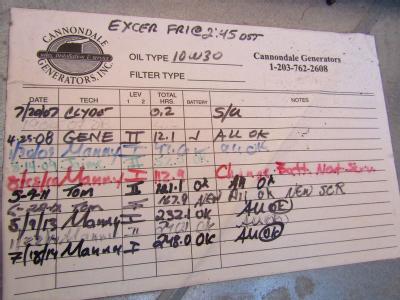 EXCER FRI@2:45 DST
CANNONDALE
GENERATORS, INC.
OIL TYPE 10W30
FILTER TYPE
Cannondale Generators
1-203-762-2608
DATE TECH LEV 1 2 TOTAL HRS. BATTERY NOTES
7/20/07 CLYDE 0.2 S/U
4-25-08 GENE II 12.1 √ ALL OK
Manny I ALL OK
Tom
Manny I 112.9 Change Batt Next Serv
Tom II OK All OK
Tom 167.9 NEW All OK NEW SCR
5/9/13 Manny I 232.1 OK All OK
Manny OK All OK
7/18/14 Manny I 248.0 OK All OK